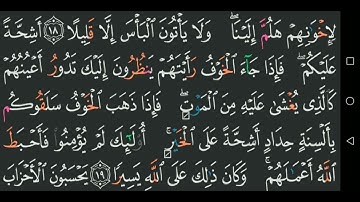 لِإِخْوَٰنِهِمْ هَلُمَّ إِلَيْنَا ۖ وَلَا يَأْتُونَ الْبَأْسَ إِلَّا قَلِيلًا ﴿١٨﴾ أَشِحَّةً
عَلَيْكُمْ ۖ فَإِذَا جَآءَ الْخَوْفُ رَأَيْتَهُمْ يَنظُرُونَ إِلَيْكَ تَدُورُ أَعْيُنُهُمْ
كَالَّذِى يُغْشَىٰ عَلَيْهِ مِنَ الْمَوْتِ ۖ فَإِذَا ذَهَبَ الْخَوْفُ سَلَقُوكُم
بِأَلْسِنَةٍ حِدَادٍ أَشِحَّةً عَلَى الْخَيْرِ ۚ أُو۟لَٰٓئِكَ لَمْ يُؤْمِنُوا۟ فَأَحْبَطَ
اللَّهُ أَعْمَٰلَهُمْ ۚ وَكَانَ ذَٰلِكَ عَلَى اللَّهِ يَسِيرًا ﴿١٩﴾ يَحْسَبُونَ الْأَحْزَابَ